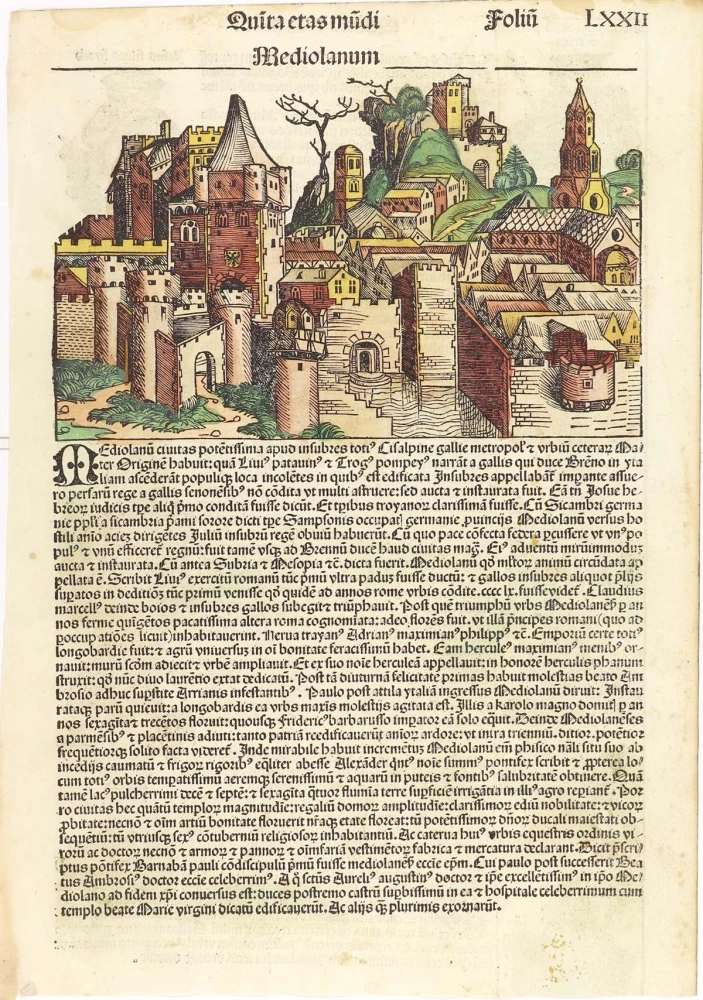 Quīta etas mūdi Foliū LXXII
Mediolanum
MEdiolanū ciuitas potētissima apud insubres totiꝰ Cisalpine gallie metropolꝭ ⁊ vrbiū ceterarꝝ Ma/
ter Origine habuit: quā Liuiꝰ patauinꝰ ⁊ Trogꝰ pompeyꝰ narrāt a gallis qui duce Brēno in yta
liam ascēderāt populiqꝫ loca incolētes in quibꝰ est edificata Insubres appellabāt imꝑante assue/
ro persarū rege a gallis senonēsibꝰ nō cōdita vt multi astruere: sed aucta ⁊ instaurata fuit. Eā tn̄ Iosue he-
breorꝝ iudicis tꝑe aliqͥ pͥmo conditā fuisse dicūt. Et tꝑibus troyanorꝝ clarissimā fuisse. Cū Sicambri germa
nie ppl'i a sicambria pͥami sorore dicti tꝑe Sampsonis occupatꝭ germanie ꝓuincijs Mediolanū versus ho
stili anīo acies dirigētes Iuliū insubrū regē obuiū habuerūt. Cū quo pace cōfecta federa ꝑcussere vt vnꝰ po
pulꝰ ⁊ vnū efficeret regnū: fuit tamē vsqꝫ ad Brennū ducē haud ciuitas mag̃. Eiꝰ aduentū mirūimmoduꝫ
aucta ⁊ instaurata. Cū antea Subria ⁊ Mesopia ⁊c̄. dicta fuerit. Mediolanū qꝫ mltorꝝ animū circūdata ap
pellata ē. Scribit Liuiꝰ exercitū romanū tūc pͥmū vltra padū fuisse ductū: ⁊ gallos insubres aliquot p̄lijs
suꝑatos in deditiōꝫ tūc primū venisse qō quidē ad annos rome vrbis cōdite. cccc lx. fuisse videt̄. Claudius
marcellꝰ deinde boios ⁊ insubres gallos subegit ⁊ triūphauit. Post quē triumphū vrbs Mediolanēsꝭ ꝑ an
nos ferme quīgētos pacatissima altera roma cognominata: adeo flores fuit. vt illā pͥncipes romani (quo ad
ꝑ occupatiōes licuit) inhabitauerint. Nerua trayanꝰ Adrianꝰ maximianꝰ philippꝰ ⁊c̄. Emporiū certe totiꝰ
longobardie fuit: ⁊ agrū vniuersuꝫ in oī bonitate feracissimū habet. Eam herculeꝰ maximianꝰ menibꝰ or-
nauit: murū scōm adiecit ⁊ vrbē ampliauit. Et ex suo noīe herculeā appellauit: in honorē herculis phanum
struxit: qō nūc diuo laurētio extat dedicatū. Post tā diuturnā felicitatē primas habuit molestias beato Am
brosio adhuc suꝑstite Arrianis infestantibꝰ. Paulo post attila ytaliā ingressus Mediolanū diruit: Instau
rataqꝫ parū quieuit: a longobardis ea vrbs maxīs molestijs agitata est. Illis a karolo magno domitꝭ ꝑ an
nos sexagīta ⁊ trecētos floruit: quousqꝫ Fridericꝰ barbarusso imꝑator eā solo equit. Deinde Mediolanēses
a parmēsibꝰ ⁊ placētinis adiuti: tanto patriā reedificauerūt anīorꝝ ardore: vt intra trienniū. ditiorꝫ potētiorꝫ
frequētiorqꝫ solito facta viderer̄. Inde mirabile habuit incremētuꝫ Mediolanū em̄ phisico nāli situ suo ab
incēdijs caumatū ⁊ frigorꝝ rigoribꝰ eqͣliter abesse Alexāder qͥntꝰ noīe summꝰ pontifex scribit ⁊ ꝓpterea lo/
cum totiꝰ orbis tempatissimū aeremqꝫ serenissimū ⁊ aquarū in puteis ⁊ fontibꝰ salubritatē obtinere. Quā
tamē lacꝰ pulcherrimi decē ⁊ septē: ⁊ sexagīta qͣtuor flumīa terre supficiē irrigātia in illiꝰ agro reꝑianĩ. Por
ro ciuitas hec quātū templorꝝ magnitudīe: regaliū domorꝝ amplitudīe: clarissimorꝝ ediū nobilitate: ⁊ vicorꝝ
ꝓbitate: necnō ⁊ oīm artiū bonitate floruerit nr̄aqꝫ etate floreat: tū potētissimorꝝ dn̄orꝝ ducali maiestati ob-
sequētiū: tū vtriusqꝫ sexꝰ cōtuberniū religiosorꝝ inhabitantiū. Ac caterua huiꝰ vrbis equestris ordinis vi-
rorū ac doctorꝝ necnō ⁊ armorꝝ ⁊ pannorꝝ ⁊ oīmfariā vestimētorꝝ fabrica ⁊ mercatura declarant. Dicit p̄scri
ptus pōtifex Barnabā pauli cōdiscipulū pͥmū fuisse mediolanēꝭ eccīe ep̄m. Cui paulo post successerit Bea
tus Ambrosiꝰ doctor eccīe celeberrimꝰ. A qͦ sc̄tus Aureliꝰ augustinꝰ doctor ⁊ ip̄e excellētissimꝰ in ip̄o Me/
diolano ad fidem xp̄i conuersus est: duces postremo castrū suꝑbissimū in ea ⁊ hospitale celeberrimum cum
templo beate Marie virgini dicatū edificauerūt. Ac alijs qꝫ plurimis exornarūt.